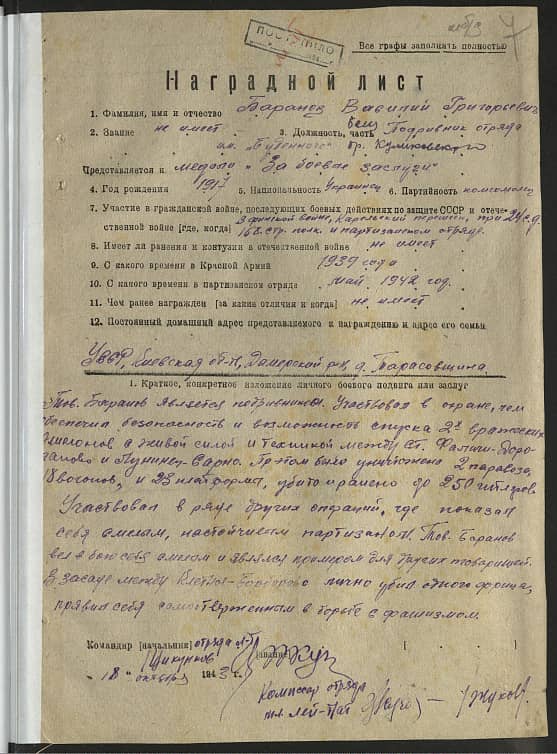 ПОСТУПИЛО
Все графы заполнять полностью
Наградной лист
1. Фамилия, имя и отчество Баранов Василий Григорьевич
2. Звание не имеет 3. Должность, часть Подрывник отряда
им. Буденного бр. Куликовского
Представляется к медали "За боевые заслуги"
4. Год рождения 1917 5. Национальность Украинец 6. Партийность комсомолец
7. Участие в гражданской войне, последующих боевых действиях по защите СССР и отече-
ственной войне [где, когда] В финской войне, Карельский перешеек, при 24 с.д.
168 стр. полк. и партизанском отряде.
8. Имеет ли ранения и контузии в отечественной войне не имеет
9. С какого времени в Красной Армий 1939 года
10. С какого времени в партизанском отряде май 1942 год.
11. Чем ранее награжден [за какие отличия и когда] не имеет
12. Постоянный домашний адрес представляемого к награждению и адрес его семьи
УССР, Киевская об-ть, Дамерский р-н, д. Тарасовщина
1. Краткое, конкретное изложение личного боевого подвига или заслуг
Тов. Баранов является подрывником. Участвовал в охране, чем
обеспечил безопасность и возможность спуска 2х вражеских
эшелонов с живой силой и техникой между ст.
и Лунинец-Сарно. При этом было уничтожено 2 паровоза,
18 вагонов, и 23 платформы, убито и ранено до 250 гитлеров.
Участвовал в ряде других операций, где показал
себя смелым, настойчивым партизаном. Тов. Баранов
вел в бою себя смело и являлся примером для других товарищей.
В засаде между лично убил одного фрица,
проявил себя самоотверженным в борьбе с фашизмом.
Командир [начальник] отряда
Шикунков
[звание]
"18" октября 1943 г.
Комиссар отряда
мл. лей-нат Жуков